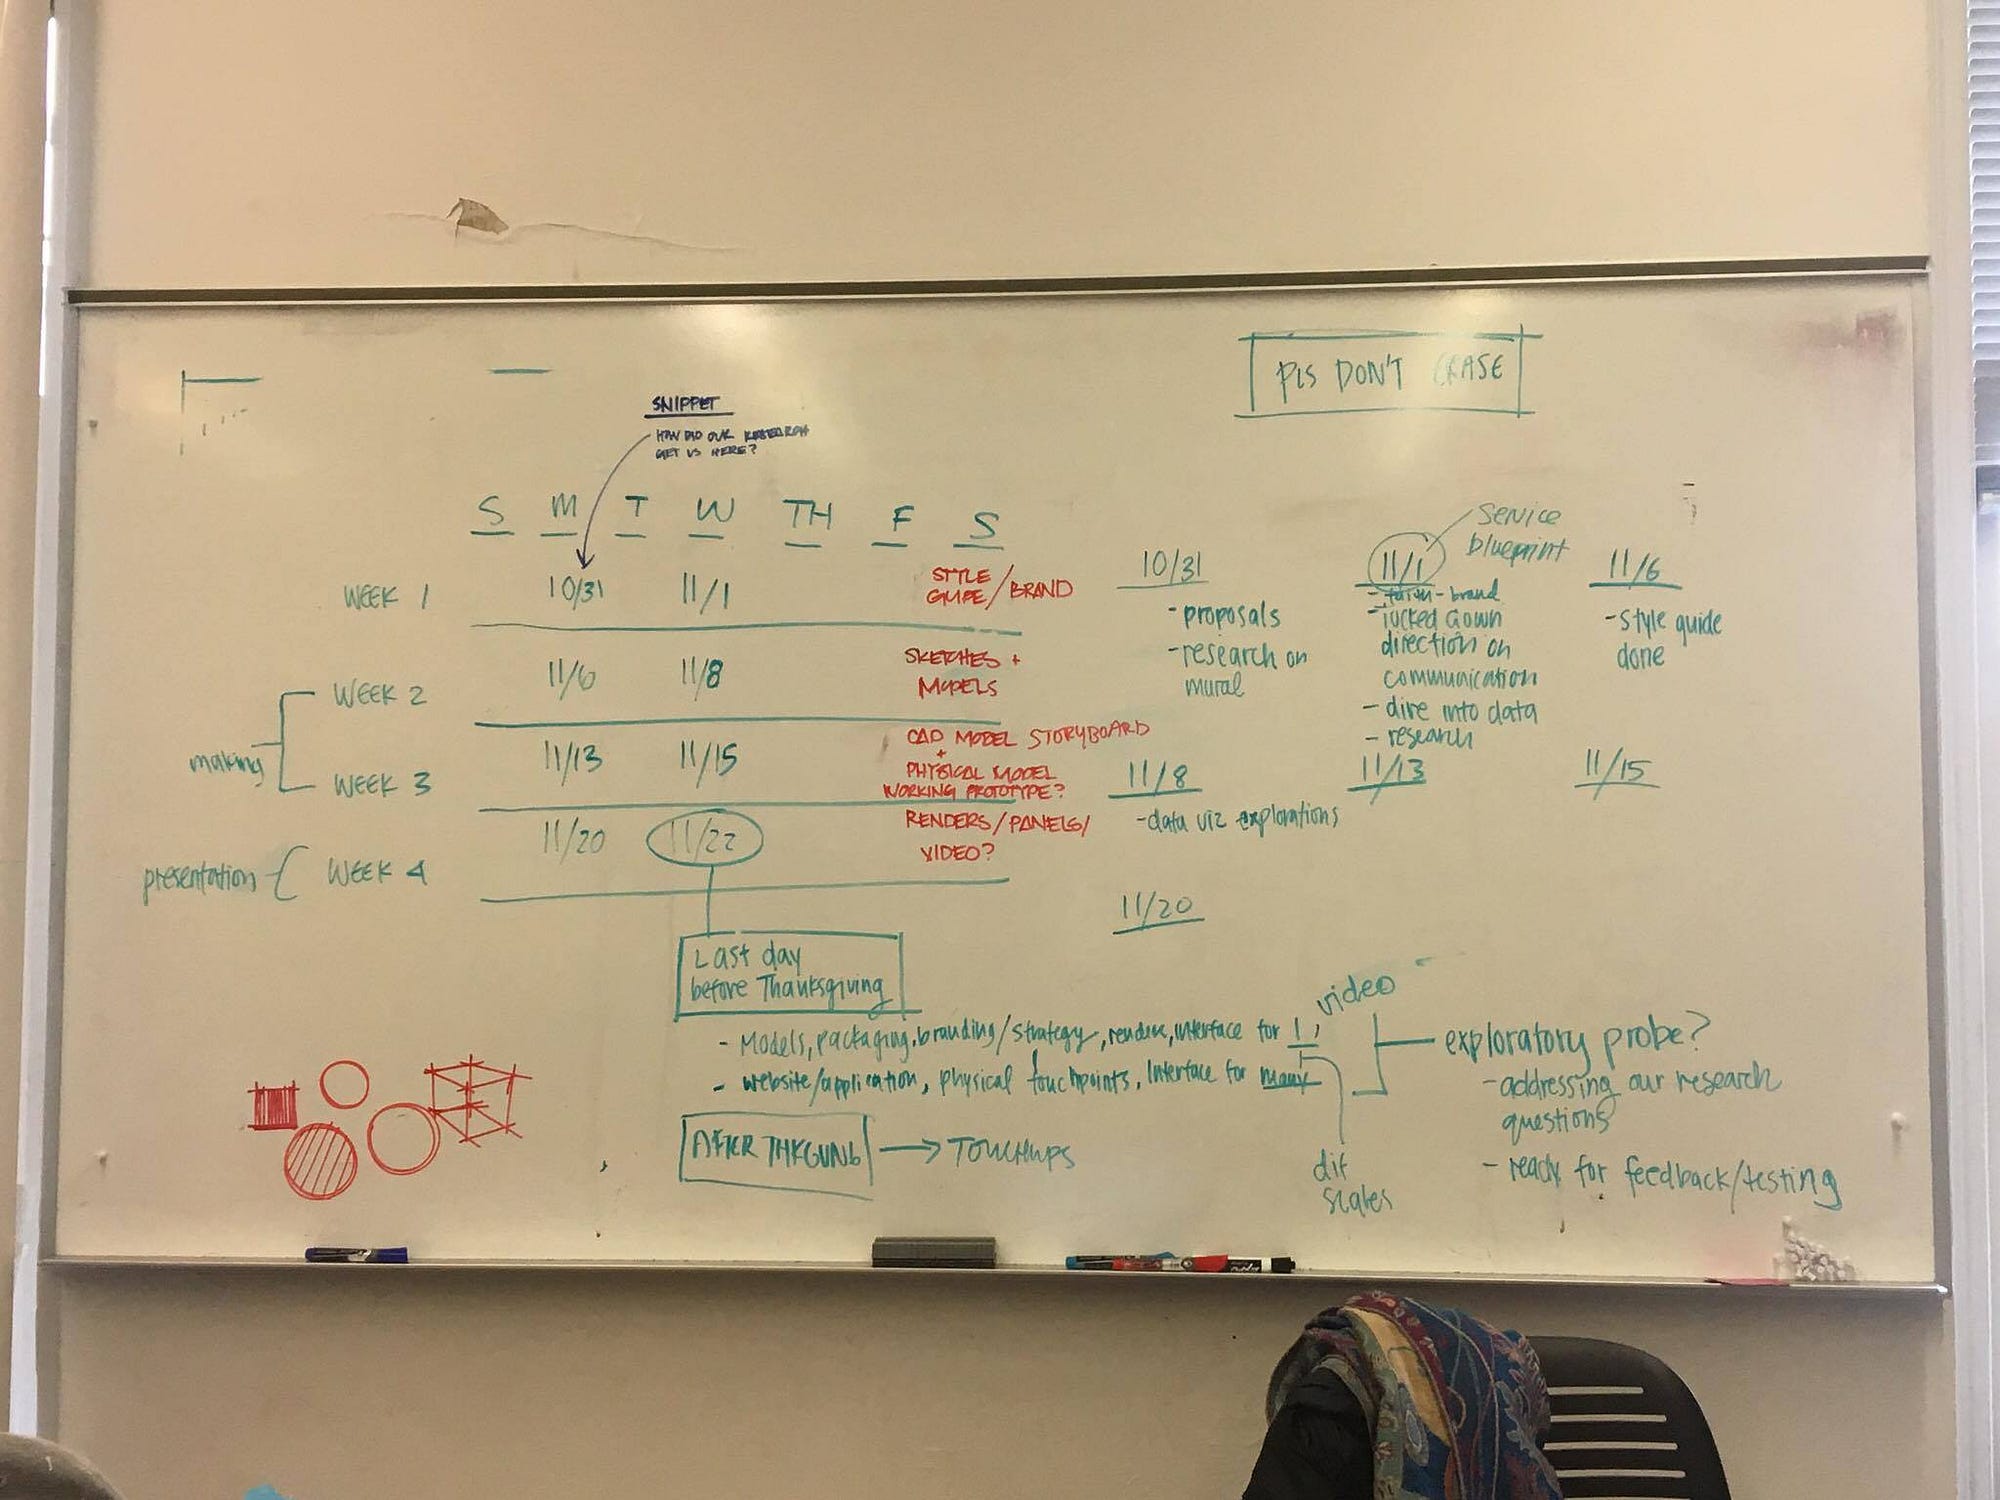 PLS DON'T ERASE
SNIPPET
HOW DID OUR RESEARCH
GET US HERE?
S M T W TH F S
WEEK 1 10/31 11/1 STYLE
GUIDE/BRAND
WEEK 2 11/6 11/8 SKETCHES +
MODELS
making
WEEK 3 11/13 11/15 CAD MODEL STORYBOARD
+
PHYSICAL MODEL
WORKING PROTOTYPE?
presentation WEEK 4 11/20 11/22 RENDERS/PANELS/
VIDEO?
Last day
before Thanksgiving
- Models, packaging, branding/strategy, render, interface for 1,
- website/application, physical touchpoints, Interface for many
AFTER THKGVNG → TOUCHUPS
10/31
- proposals
- research on
mural
Service
blueprint
11/1
- brand
- locked down
direction on
communication
- dive into data
- research
11/6
- style guide
done
11/8
- data viz explorations
11/13
11/15
11/20
video
dif
scales
exploratory probe?
- addressing our research
questions
- ready for feedback/testing